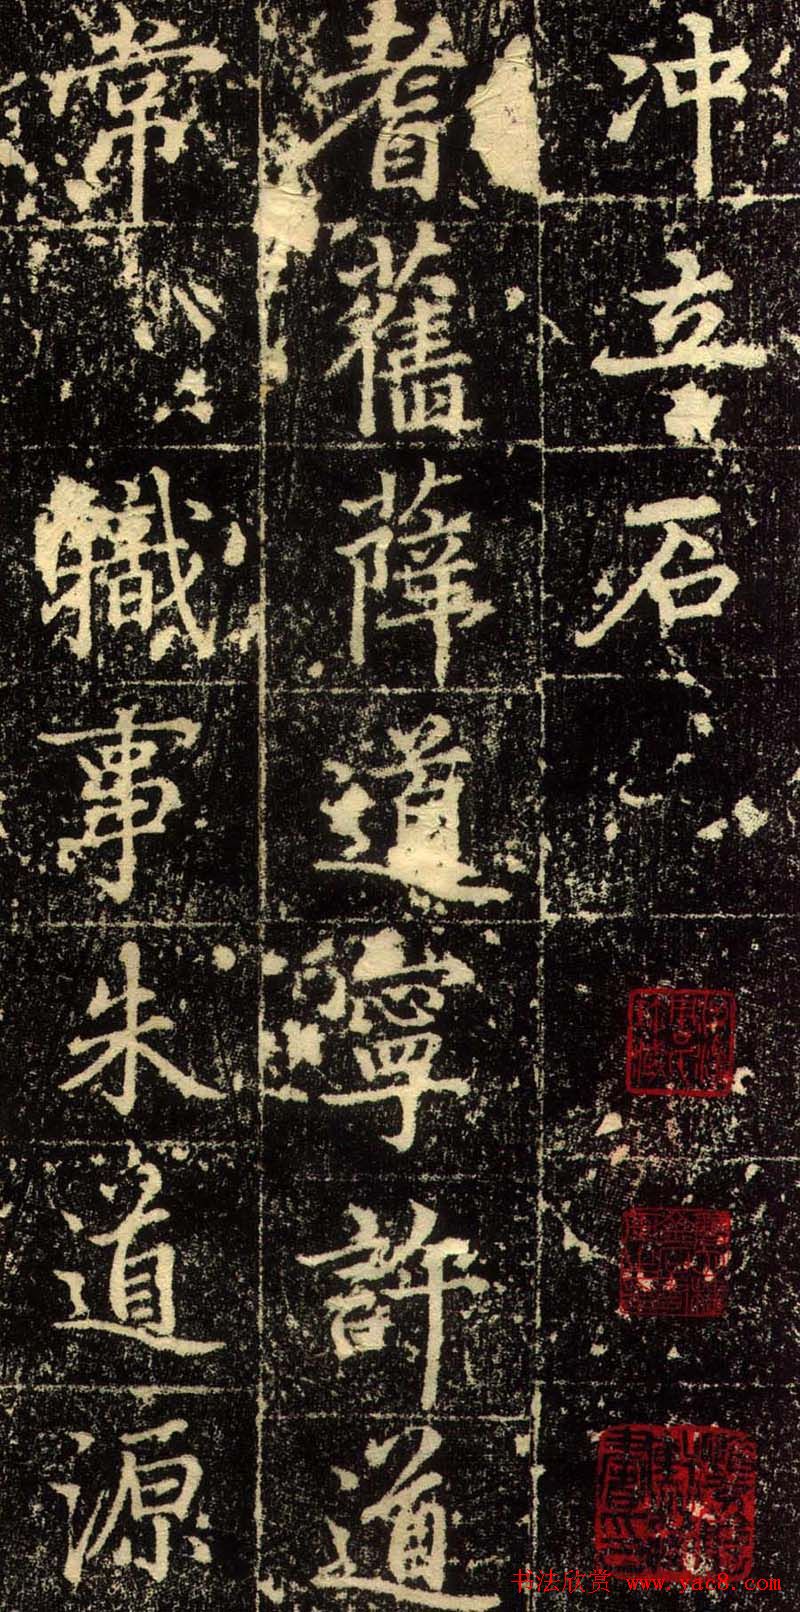 冲立石
耆舊薛道寧許道
常職事朱道源
书法欣赏 www.yac8.com